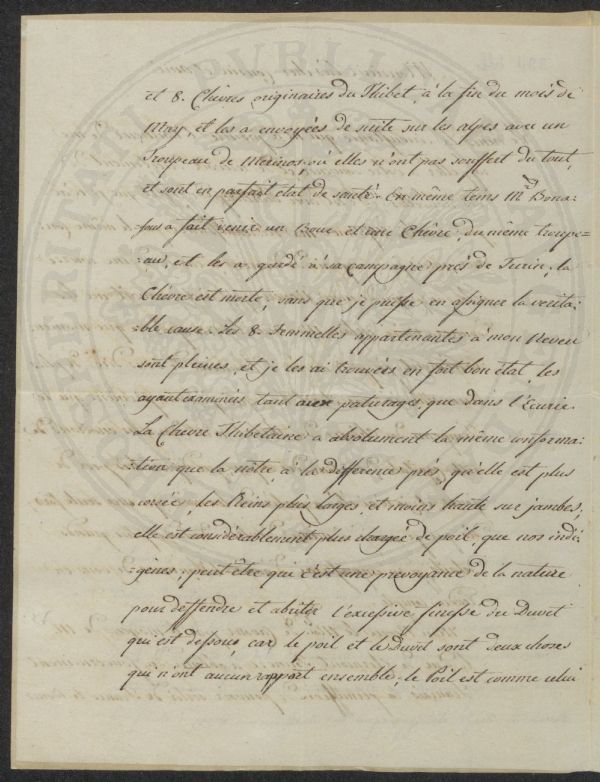 et 8. Chèvres originaires du Thibet, à la fin du mois de
May, et les a envoyées de suite sur les alpes avec un
Troupeau de Merinos, où elles n'ont pas souffert du tout,
et sont en parfait état de santé. En même tems Mr. Bona-
fous a fait venir un Bouc et une Chèvre, du même troupe-
-au, et les a gardé à sa campagne près de Turin, la
Chèvre est morte, sans que je puisse en assigner la verita-
-ble cause. Les 8. Femmelles appartenantes à mon Neveu
sont pleines, et je les ai trouvées en fort bon état, les
ayant examinées tant aux paturages, que dans l'Ecurie.
La Chevre Thibetaine a absolument la même conforma-
-tion que la nôtre, à la différence près, qu'elle est plus
corsée, les Reins plus larges, et moins haute sur jambes,
elle est considérablement plus chargée de poil, que nos indi-
-gènes; peut être que c'est une prevoyance de la nature
pour deffendre et abriter l'excessive finesse du Duvet
qui est dessous, car le poil et le Duvet sont deux choses
qui n'ont aucun rapport ensemble; le Poil est comme celui